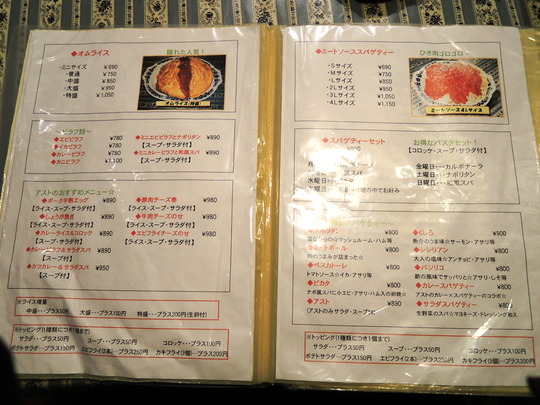 ◆オムライス
隠れた人気！
・ミニサイズ ￥690
・普通 ￥750
・中盛 ￥850
・大盛 ￥950
・特盛 ￥1,050
オムライス(特盛)
◆エビピラフ ￥780
◆イカピラフ ￥780
◆カレーピラフ ￥780
◆カニピラフ ￥1,100
◆ミニエビピラフとナポリタン ￥890
【スープ・サラダ付】
◆ミニカレーピラフと和風スパ ￥890
【スープ・サラダ付】
アストのおすすめメニュー☆
◆ポーク半熟エッグ ￥890
【ライス・スープ・サラダ付】
◆しょうが焼き ￥890
【ライス・スープ・サラダ付】
◆カレーライス＆コロッケ ￥890
【スープ・サラダ付】
◆カレーピラフ＆サラダスパ ￥890
【スープ付】
◆カツカレー＆サラダスパ ￥950
【スープ付】
◆豚肉チーズ巻 ￥980
【ライス・スープ・サラダ付】
◆牛肉チーズのせ ￥980
【ライス・スープ・サラダ付】
◆エビフライチーズのせ ￥980
【ライス・スープ・サラダ付】
※ライス増量
中盛・・・プラス50円 大盛・・・プラス100円 特盛・・・プラス200円(生卵付)
※トッピング(1種類につき1個まで)
サラダ・・・プラス50円 スープ・・・プラス50円 コロッケ・・・プラス100円
ポテトサラダ・・・プラス150円 エビフライ(2本)・・・プラス250円 カキフライ(3個)・・・プラス200円
◆ミートソーススパゲティー
ひき肉ゴロゴロ
・Sサイズ ￥690
・Mサイズ ￥750
・Lサイズ ￥850
・2Lサイズ ￥950
・3Lサイズ ￥1,050
・4Lサイズ ￥1,150
ミートソース4Lサイズ
◆スパゲティーセット
￥890
お得なパスタセット！
【コロッケ・スープ・サラダ付】
水曜日・・・
金曜日・・・カルボナーラ
土曜日・・・ナポリタン
日曜日・・・和風スパ
の中でお好み
￥800
のマッシュルーム・ハム入
◆ミートボール ￥800
肉のうまみが詰まった☆
◆ペスカトーレ ￥800
トマトソース☆イカ・アサリ等
◆ピカタ ￥800
ナポ風スパに小エビ・アサリ・ハム入の卵焼☆
◆アスト ￥890
【アストのみサラダ・スープ付】
◆くしろ ￥800
魚介のうま味☆サーモン・アサリ等
◆シシリアン ￥800
大人の塩味☆アンチョビ・アサリ等
◆バジリコ ￥800
酢の風味でサッパリと☆アサリ・しそ等
◆カレースパゲティー ￥800
アストのカレー×スパゲティーのコラボ☆
◆サラダスパゲティー ￥800
生野菜のスパ☆マヨネーズ・ドレッシング和え
※トッピング(1種類につき1個まで)
サラダ・・・プラス50円 スープ・・・プラス50円 コロッケ・・・プラス100円
ポテトサラダ・・・プラス150円 エビフライ(2本)・・・プラス250円 カキフライ(3個)・・・プラス200円